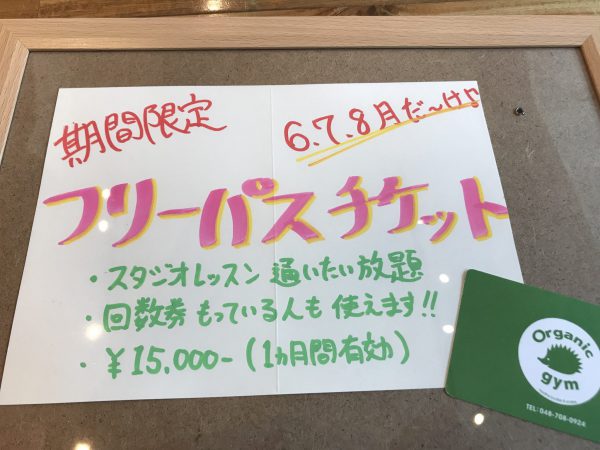 期間限定
6.7.8月だ〜け!!
フリーパスチケット
・スタジオレッスン 通いたい放題
・回数券 もっている人も 使えます!!
・¥15,000-(1ヵ月間有効)
Organic
gym
TEL:048-708-0924